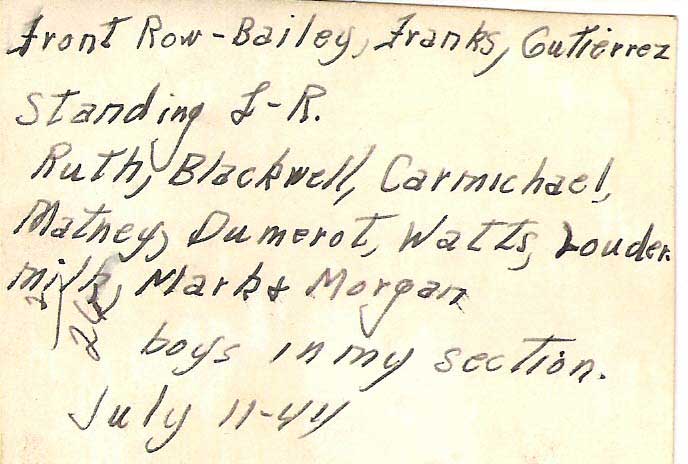 Front Row-Bailey, Franks, Gutierrez
Standing L-R.
Ruth, Blackwell, Carmichael,
Mathey, Dumerot, Watts, Louder-
milk, Mark & Morgan
boys in my section.
July 11-44